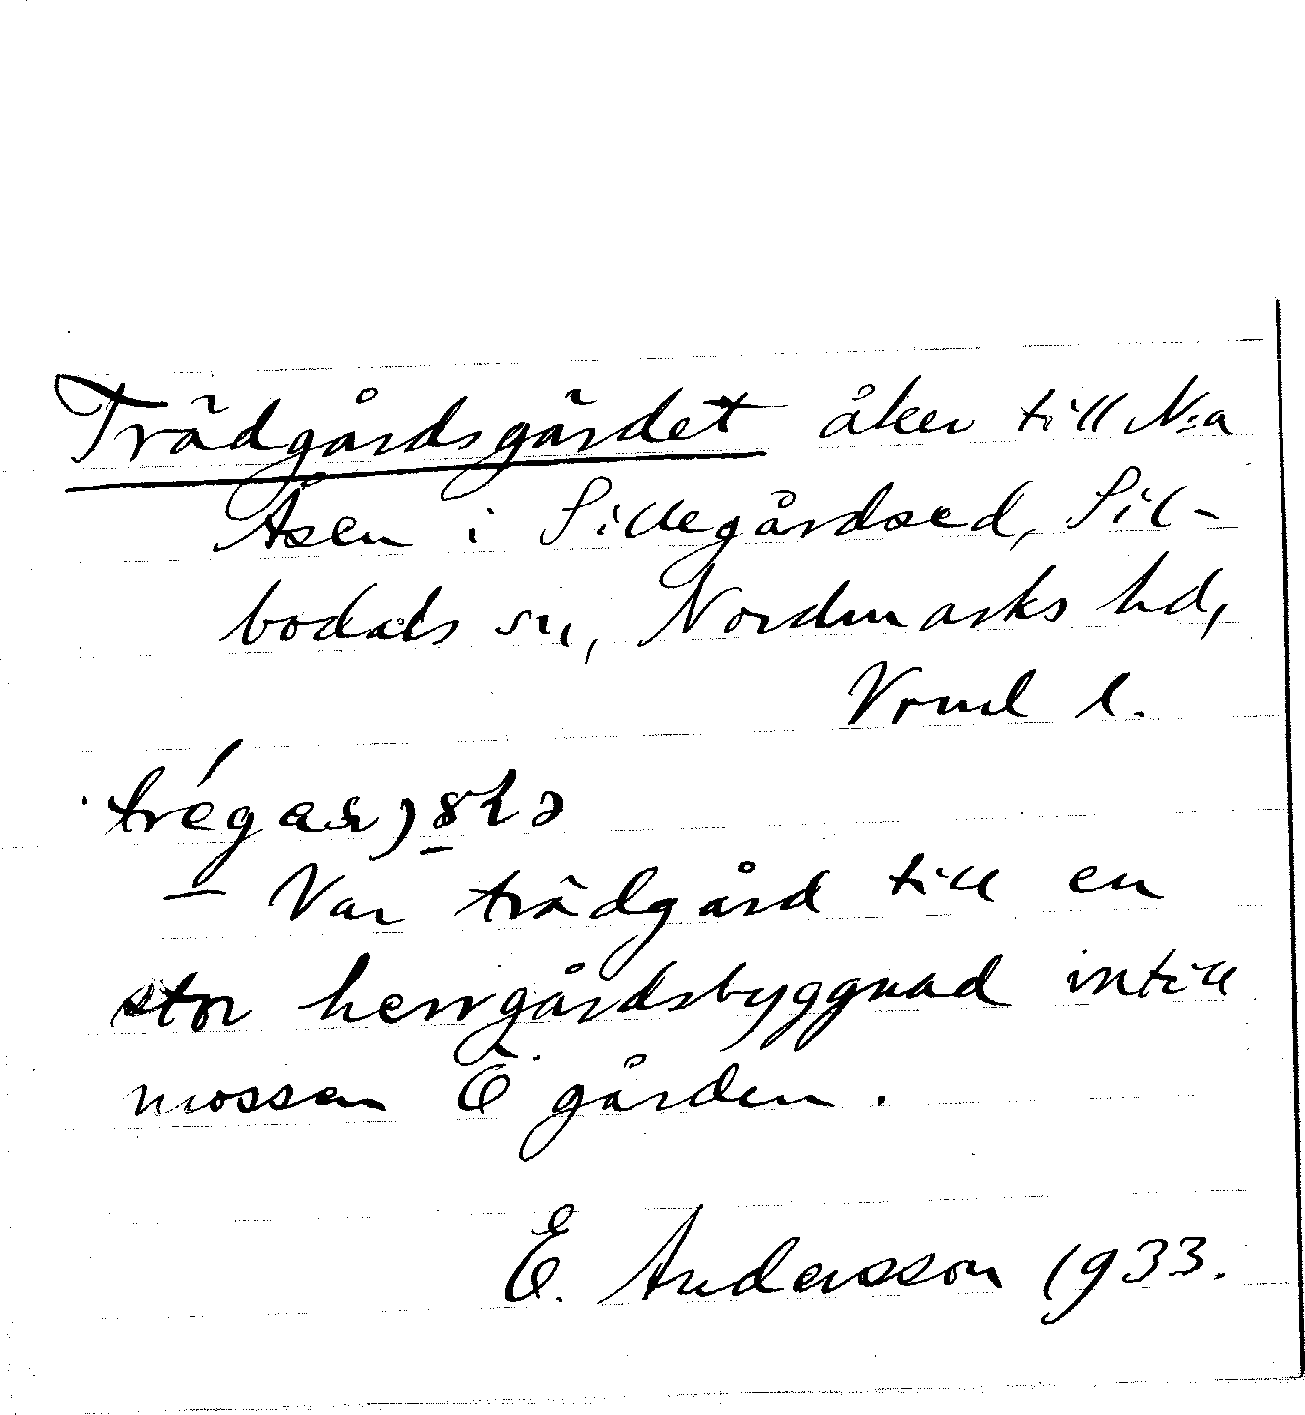 Trädgårdsgärdet åker till N:a
Åsen i Sillegårdsed, Sil-
bodals sn, Nordmarks hd,
Vrml l.
— Var trädgård till en
stor herrgårdsbyggnad intill
mossen Ö gården.
E. Andersson 1933.